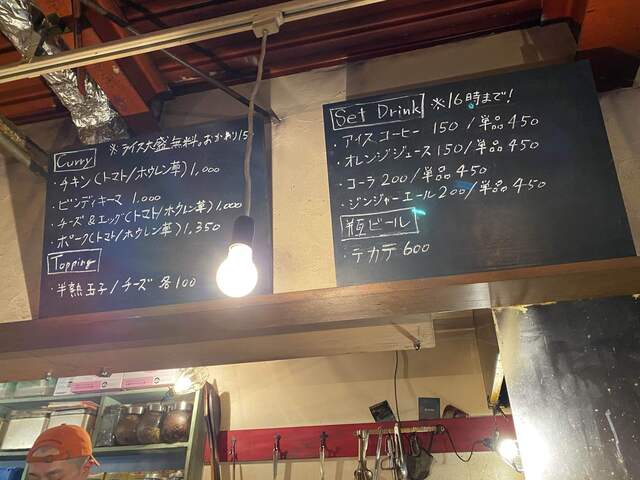 Curry
※ライス大盛無料。おかわり15
・チキン(トマト/ホウレン草)1,000
・ビンディキーマ 1,000
・チーズ&エッグ(トマト/ホウレン草)1,000
・ポーク(トマト/ホウレン草)1,350
Topping
・半熟玉子/チーズ 各100
Set Drink ※16時まで!
・アイスコーヒー 150/単品450
・オレンジジュース 150/単品450
・コーラ 200/単品450
・ジンジャーエール 200/単品450
瓶ビール
・テカテ 600